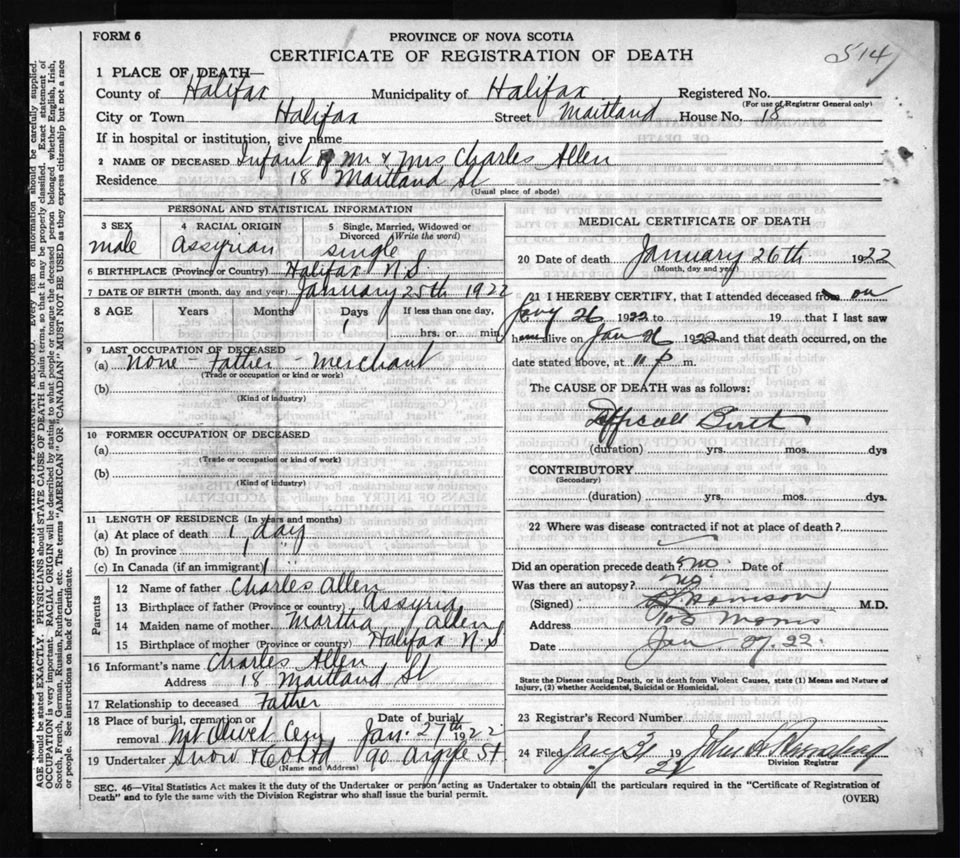 FORM 6
PROVINCE OF NOVA SCOTIA
CERTIFICATE OF REGISTRATION OF DEATH
514
1 PLACE OF DEATH—
County of Halifax Municipality of Halifax Registered No.
(For use of Registrar General only)
City or Town Halifax Street Maitland House No. 18
If in hospital or institution, give name
2 NAME OF DECEASED Infant of Mr & Mrs Charles Allen
Residence 18 Maitland St
(Usual place of abode)
PERSONAL AND STATISTICAL INFORMATION
3 SEX 4 RACIAL ORIGIN 5 Single, Married, Widowed or
Divorced (Write the word)
male Assyrian single
6 BIRTHPLACE (Province or Country) Halifax N.S.
7 DATE OF BIRTH (month, day and year) January 25th 1922
8 AGE Years Months Days If less than one day,
1 hrs. or min.
9 LAST OCCUPATION OF DECEASED
(a) None - Father - Merchant
(Trade or occupation or kind or work)
(b)
(Kind of industry)
10 FORMER OCCUPATION OF DECEASED
(a)
(Trade or occupation or kind of work)
(b)
(Kind of industry)
11 LENGTH OF RESIDENCE (In years and months)
(a) At place of death 1 day
(b) In province 1
(c) In Canada (if an immigrant)
Parents
12 Name of father Charles Allen
13 Birthplace of father (Province or country) Assyria
14 Maiden name of mother Martha Allen
15 Birthplace of mother (Province or country) Halifax N.S
16 Informant's name Charles Allen
Address 18 Maitland St
17 Relationship to deceased Father
18 Place of burial, cremation or Date of burial
removal Mt Olivet Cem Jan. 27th 1922
19 Undertaker Snow & Co Ltd 90 Argyle St.
(Name and Address)
MEDICAL CERTIFICATE OF DEATH
20 Date of death January 26th 1922
(Month, day and year)
21 I HEREBY CERTIFY, that I attended deceased from on
Jany 26 1922 to 19 that I last saw
h alive on Jan 26 1922 and that death occurred, on the
date stated above, at 11 p m.
The CAUSE OF DEATH was as follows:
Birth
(duration) yrs. mos. dys
CONTRIBUTORY
(Secondary)
(duration) yrs. mos. dys.
22 Where was disease contracted if not at place of death?
Did an operation precede death? No Date of
Was there an autopsy? No
(Signed) Morrison M.D.
Address Morris
Date Jan. 27. 22.
State the Disease causing Death, or in death from Violent Causes, state (1) Means and Nature of
Injury, (2) whether Accidental, Suicidal or Homicidal.
23 Registrar's Record Number
24 Filed Jany 19 22 John
Division Registrar
SEC. 46—Vital Statistics Act makes it the duty of the Undertaker or person acting as Undertaker to obtain all the particulars required in the "Certificate of Registration of
Death" and to fyle the same with the Division Registrar who shall issue the burial permit.
(OVER)
Every item of information should be carefully supplied.
AGE should be stated EXACTLY. PHYSICIANS should STATE CAUSE OF DEATH in plain terms, so that it may be properly classified. Exact statement of
OCCUPATION is very important. RACIAL ORIGIN will be described by stating to what people or tongue the deceased person belonged whether English, Irish,
Scotch, French, German, Russian, Ruthenian, etc. The terms "AMERICAN" OR "CANADIAN" MUST NOT BE USED as they express citizenship but not a race
or people. See instructions on back of Certificate.